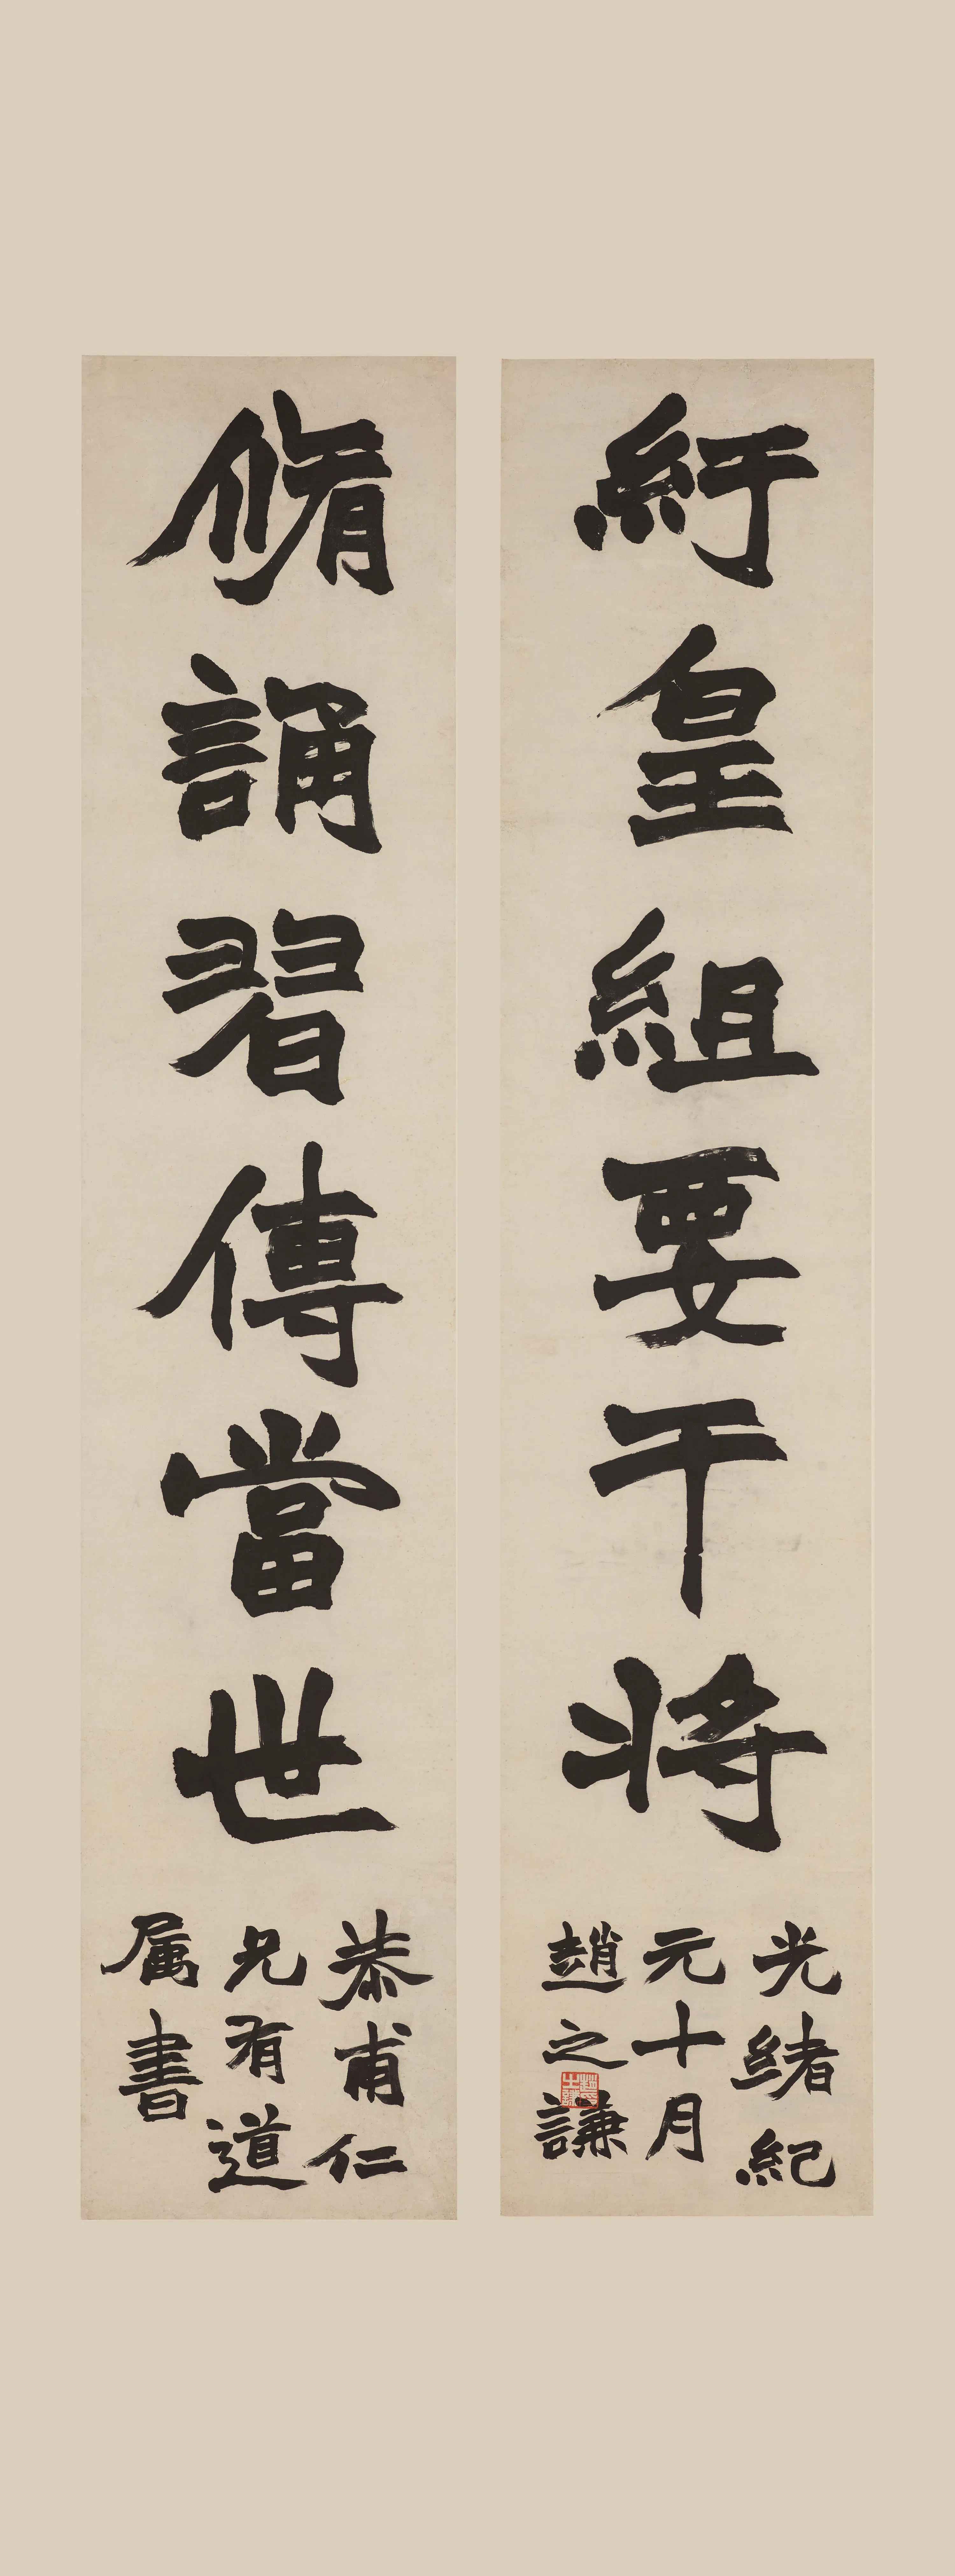 紆皇組要干将
光緒紀
元十月
趙之謙
脩誦習傳當世
恭甫仁
兄有道
属書